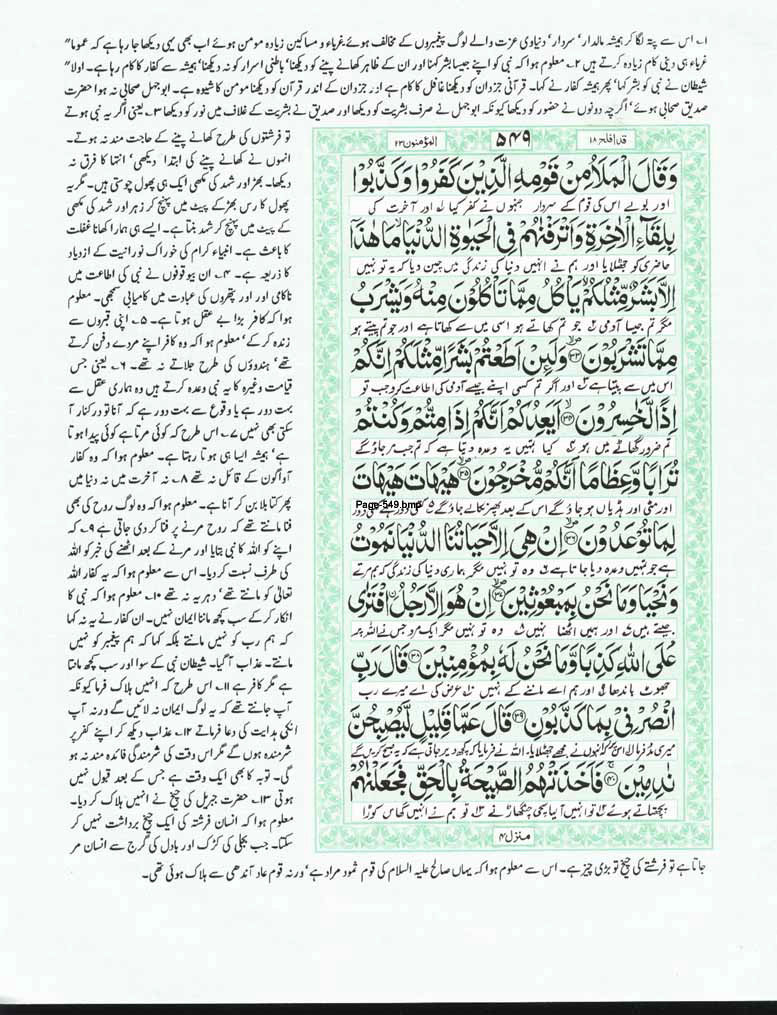 ۱؎ اس سے پتہ لگا کر ہمیشہ مالدار' سردار' دنیاوی عزت والے لوگ پیغمبروں کے مخالف ہوئے غرباء و مساکین زیادہ مومن ہوئے اب بھی یہی دیکھا جا رہا ہے کہ عموما"
غرباء ہی دینی کام زیادہ کرتے ہیں ۲؎ معلوم ہوا کہ نبی کو اپنے جیسا بشر کہنا اور ان کے ظاہر کھانے پینے کو دیکھنا' باطنی اسرار کو نہ دیکھنا' ہمیشہ سے کفار کا کام رہا ہے۔ اولا"
شیطان نے نبی کو بشر کہا' پھر ہمیشہ کفار نے کہا۔ قرآنی جزدان کو دیکھنا غافل کا کام ہے اور جزدان کے اندر قرآن کو دیکھنا مومن کا شیوہ ہے۔ ابوجہل صحابی نہ ہوا حضرت
صدیق صحابی ہوئے' اگرچہ دونوں نے حضور کو دیکھا کیونکہ ابوجہل نے صرف بشریت کو دیکھا اور صدیق نے بشریت کے غلاف میں نور کو دیکھا ۳؎ یعنی اگر یہ نبی ہوتے
قد افلح ۱۸
۵۴۹
المؤمنون ۲۳
وَقَالَ الْمَلَاُ مِنْ قَوْمِهِ الَّذِيْنَ كَفَرُوْا وَكَذَّبُوْا
اور بولے اس کی قوم کے سردار جنہوں نے کفر کیا ۱؎ اور آخرت کی
بِلِقَآءِ الْاٰخِرَةِ وَاَتْرَفْنٰهُمْ فِى الْحَيٰوةِ الدُّنْيَا ۙ مَا هٰذَآ
حاضری کو جھٹلایا اور ہم نے انہیں دنیا کی زندگی میں چین دیا کہ یہ تو نہیں
اِلَّا بَشَرٌ مِّثْلُكُمْ ۙ يَاْكُلُ مِمَّا تَاْكُلُوْنَ مِنْهُ وَيَشْرَبُ
مگر تم جیسا آدمی ۲؎ جو تم کھاتے ہو اسی میں سے کھاتا ہے اور جو تم پیتے ہو
مِمَّا تَشْرَبُوْنَ ۙ۳۳ وَلَىِٕنْ اَطَعْتُمْ بَشَرًا مِّثْلَكُمْ اِنَّكُمْ
اس میں سے پیتا ہے ۳؎ اور اگر تم کسی اپنے جیسے آدمی کی اطاعت کرو جب تو
اِذًا لَّخٰسِرُوْنَ ۙ۳۴ اَيَعِدُكُمْ اَنَّكُمْ اِذَا مِتُّمْ وَكُنْتُمْ
تم ضرور گھاٹے میں ہو ۴؎ کیا تمہیں یہ وعدہ دیتا ہے کہ تم جب مر جاؤ گے
تُرَابًا وَّعِظَامًا اَنَّكُمْ مُّخْرَجُوْنَ ۪ۙ۳۵ هَيْهَاتَ هَيْهَاتَ
اور مٹی اور ہڈیاں ہو جاؤ گے اس کے بعد پھر نکالے جاؤ گے ۵؎
Page-549.bmp
لِمَا تُوْعَدُوْنَ ۪ۙ۳۶ اِنْ هِىَ اِلَّا حَيَاتُنَا الدُّنْيَا نَمُوْتُ
ہے جو تمہیں وعدہ دیا جاتا ہے ۶؎ وہ تو نہیں مگر ہماری دنیا کی زندگی کہ ہم مرتے
وَنَحْيَا وَمَا نَحْنُ بِمَبْعُوْثِيْنَ ۪ۙ۳۷ اِنْ هُوَ اِلَّا رَجُلُ افْتَرٰى
جیتے ہیں ۷؎ اور ہمیں اٹھنا نہیں ۸؎ وہ تو نہیں مگر ایک مرد جس نے اللہ پر
عَلَى اللّٰهِ كَذِبًا وَّمَا نَحْنُ لَهٗ بِمُؤْمِنِيْنَ ۳۸ قَالَ رَبِّ
جھوٹ باندھا ۹؎ اور ہم اسے ماننے کے نہیں ۱۰؎ عرض کی اے میرے رب
انْصُرْنِىْ بِمَا كَذَّبُوْنِ ۳۹ قَالَ عَمَّا قَلِيْلٍ لَّيُصْبِحُنَّ
میری مدد فرما ۱۱؎ اس پر کہ انہوں نے مجھے جھٹلایا۔ اللہ نے فرمایا کہ کچھ دیر جاتی ہے کہ یہ صبح کریں گے
نٰدِمِيْنَ ۚ۴۰ فَاَخَذَتْهُمُ الصَّيْحَةُ بِالْحَقِّ فَجَعَلْنٰهُمْ
پچھتاتے ہوئے ۱۲؎ تو انہیں آ لیا سچی چنگھاڑ نے ۱۳؎ تو ہم نے انہیں گھاس کوڑا
منزل ۴
تو فرشتوں کی طرح کھانے پینے کے حاجت مند نہ ہوتے۔
انہوں نے کھانے پینے کی ابتدا دیکھی' انتہا کا فرق نہ
دیکھا۔ بھڑ اور شہد کی مکھی ایک ہی پھول چوستی ہیں۔ مگر یہ
پھول کا رس بھڑ کے پیٹ میں پہنچ کر زہر اور شہد کی مکھی
کے پیٹ میں پہنچ کر شہد بنتا ہے۔ ایسے ہی ہمارا کھانا غفلت
کا باعث ہے۔ انبیاء کرام کی خوراک نورانیت کے ازدیاد
کا ذریعہ ہے۔ ۴؎ ان بیوقوفوں نے نبی کی اطاعت میں
ناکامی اور اور پتھروں کی عبادت میں کامیابی سمجھی۔ معلوم
ہوا کہ کافر بڑا بے عقل ہوتا ہے۔ ۵؎ اپنی قبروں سے
زندہ کر کے' معلوم ہوا کہ وہ کافر اپنے مردے دفن کرتے
تھے' ہندوؤں کی طرح جلاتے نہ تھے۔ ۶؎ یعنی جس
قیامت وغیرہ کا یہ نبی وعدہ کرتے ہیں وہ ہماری عقل سے
بہت دور ہے یا وقوع سے بہت دور ہے کہ آنا تو درکنار آ
سکتی بھی نہیں ۷؎ اس طرح کہ کوئی مرتا ہے کوئی پیدا ہوتا
ہے' ہمیشہ ایسا ہی ہوتا رہتا ہے۔ معلوم ہوا کہ وہ کفار
آواگون کے قائل نہ تھے ۸؎ نہ آخرت میں نہ دنیا میں
پھر کتا بلا بن کر آنا ہے۔ معلوم ہوا کہ وہ لوگ روح کی بھی
فنا مانتے تھے کہ روح مرنے پر فنا کر دی جاتی ہے ۹؎ کہ
اپنے کو اللہ کا نبی بتایا اور مرنے کے بعد اٹھنے کی خبر کو اللہ
کی طرف نسبت کر دیا۔ اس سے معلوم ہوا کہ یہ کفار اللہ
تعالٰی کو مانتے تھے' دہریہ نہ تھے ۱۰؎ معلوم ہوا کہ نبی کا
انکار کر کے سب کچھ ماننا ایمان نہیں۔ ان کفار نے یہ نہ کہا
کہ ہم رب کو نہیں مانتے بلکہ کہا کہ ہم پیغمبر کو نہیں
مانتے۔ عذاب آ گیا۔ شیطان نبی کے سوا اور سب کچھ مانتا
ہے مگر کافر ہے ۱۱؎ اس طرح کہ انہیں ہلاک فرما کیونکہ
آپ جانتے تھے کہ یہ لوگ ایمان نہ لائیں گے ورنہ آپ
انکی ہدایت کی دعا فرماتے ۱۲؎ عذاب دیکھ کر اپنے کفر پر
شرمندہ ہوں گے مگر اس وقت کی شرمندگی فائدہ مند نہ ہو
گی۔ توبہ کا بھی ایک وقت ہے جس کے بعد قبول نہیں
ہوتی ۱۳؎ حضرت جبریل کی چیخ نے انہیں ہلاک کر دیا۔
معلوم ہوا کہ انسان فرشتہ کی ایک چیخ برداشت نہیں کر
سکتا۔ جب بجلی کی کڑک اور بادل کی گرج سے انسان مر
جاتا ہے تو فرشتے کی چیخ تو بڑی چیز ہے۔ اس سے معلوم ہوا کہ یہاں صالح علیہ السلام کی قوم ثمود مراد ہے' ورنہ قوم عاد آندھی سے ہلاک ہوئی تھی۔